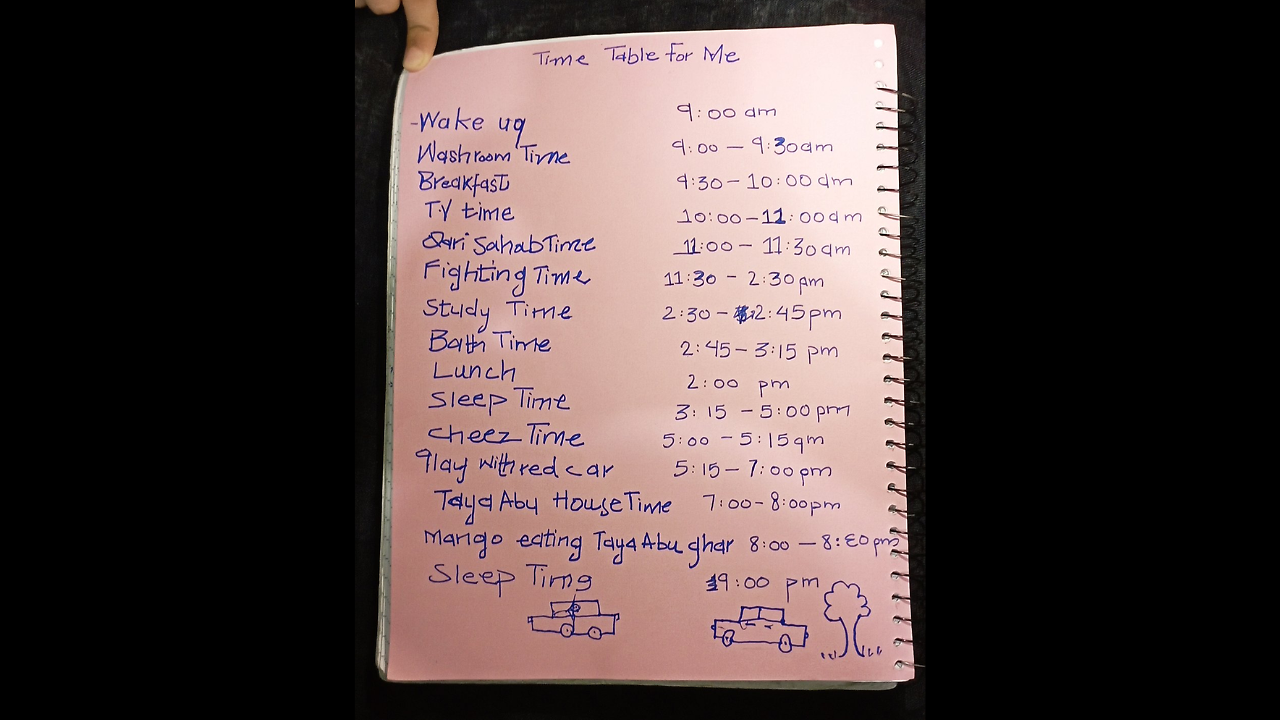 Time Table for Me
-Wake up 9:00 am
Washroom Time 9:00 - 9:30am
Breakfast 9:30 - 10:00 am
T.V time 10:00 - 11:00am
Qari Sahab Time 11:00 - 11:30am
Fighting Time 11:30 - 2:30pm
Study Time 2:30 - 2:45pm
Bath Time 2:45 - 3:15 pm
Lunch 2:00 pm
Sleep Time 3:15 - 5:00pm
Cheez Time 5:00 - 5:15qm
Play with red car 5:15 - 7:00pm
Taya Abu House Time 7:00 - 8:00pm
Mango eating Taya Abu ghar 8:00 - 8:30pm
Sleep Time 9:00 pm